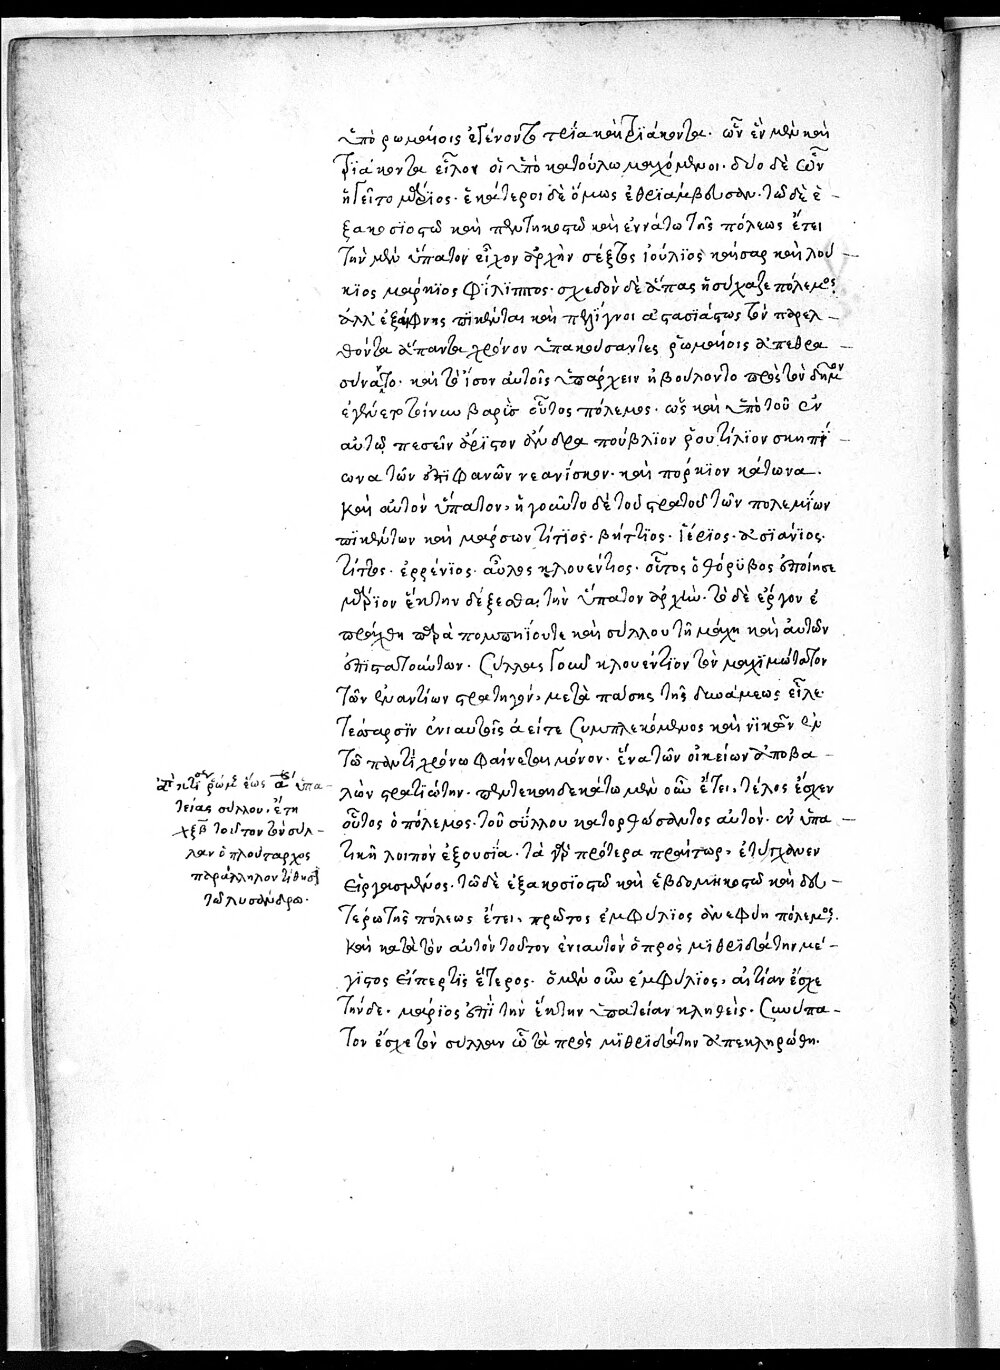 ὑπὸ ρωμαίοις ἐγένοντο τρία καὶ τριάκοντα. ὧν ἓν μὲν καὶ
τριάκοντα εἷλον οἱ ὑπὸ κατούλω μαχόμενοι. δύο δὲ ὧν
ἡγεῖτο μάριος. ἑκάτεροι δὲ ὅμως ἐθριάμβευσαν. τῶ δὲ ἑ-
ξακοσιοστῶ καὶ πεντηκοστῶ καὶ ἐννάτω τῆς πόλεως ἔτει
τὴν μὲν ὕπατον εἶχον ἀρχὴν σέξτος ἰούλιος καῖσαρ καὶ λού-
κιος μάρκιος φίλιππος. σχεδὸν δὲ ἅπας ἡσύχαζε πόλεμος.
ἀλλ' ἐξαίφνης πικένται καὶ πελίγνοι ἀστασιάστως τὸν παρελ-
θόντα ἅπαντα χρόνον ὑπακούσαντες ῥωμαίοις ἀπεθρα-
σύναντο. καὶ τὸ ἴσον αὐτοῖς ὑπάρχειν ἠβούλοντο πρὸς τὸν δῆμον
ἐγένετο τοίνυν βαρὺς οὗτος πόλεμος. ὡς καὶ ὑπὸ τοῦ ἐν
αὐτῶ πεσεῖν ἄριστον ἄνδρα πούβλιον ῥουτίλιον σκηπί-
ωνα τῶν ἐπιφανῶν νεανίσκον. καὶ πόρκιον κάτωνα.
καὶ αὐτὸν ὕπατον, ἡγοῦντο δὲ τοῦ στρατοῦ τῶν πολεμίων
πικέντων καὶ μάρσων τίτιος. βήττιος. ἱέριος. ἀσιάνιος.
τίτος. ἑρρένιος. αὖλος κλουέντιος. οὗτος ὁ θόρυβος ἐποίησε
μάριον ἕκτην δέξασθαι τὴν ὕπατον ἀρχὴν. τὸ δὲ ἔργον ἐ
πράχθη παρὰ πομπηίου τε καὶ σύλλου τῆ μάχη καὶ αὐτῶν
ἐπιστατούντων. σύλλας γοῦν κλουέντιον τὸν μαχιμώτατον
τῶν ἐναντίων στρατηγὸν, μετὰ πάσης τῆς δυνάμεως εἷλε.
τέσσαρσιν ἐνιαυτοῖς ἀεί τε συμπλεκόμενος καὶ νικῶν ἐν
τῶ παντὶ χρόνω φαίνεται μόνον. ἕνα τῶν οἰκείων ἀποβα-
λὼν στρατιώτην. πεντεκαιδεκάτω μὲν οὖν ἔτει, τέλος ἔσχεν
οὗτος ὁ πόλεμος. τοῦ σύλλου κατορθώσαντος αὐτὸν. ἐν ὑπα-
τικῆ λοιπὸν ἐξουσία. τὰ γὰρ πρότερα πραίτωρ, ἐτύγχανεν
εἰργασμένος. τῶ δὲ ἑξακοσιοστῶ καὶ ἑβδομηκοστῶ καὶ δευ-
τέρω τῆς πόλεως ἔτει, πρῶτος ἐμφύλιος ἀνεφύη πόλεμος.
καὶ κατὰ τὸν αὐτὸν τοῦτον ἐνιαυτὸν ὁ πρὸς μιθριδάτην μέ-
γιστος εἴπερ τις ἕτερος. ὁ μὲν οὖν ἐμφύλιος, αἰτίαν ἔσχε
τήνδε. μάριος ἐπὶ τὴν ἕκτην ὑπατείαν κληθεὶς. συνύπα-
τον ἔσχε τὸν σύλλαν ὧ τὰ πρὸς μιθριδάτην ἀπεκληρώθη.
ἀπὸ κτί ῥώμ ἕως ὑπα-
τείας σύλλου, ἔτη
χξβ τοῦτον τὸν σύλ-
λαν ὁ πλούταρχος
παράλληλον τίθησι
τῶ λυσάνδρω.